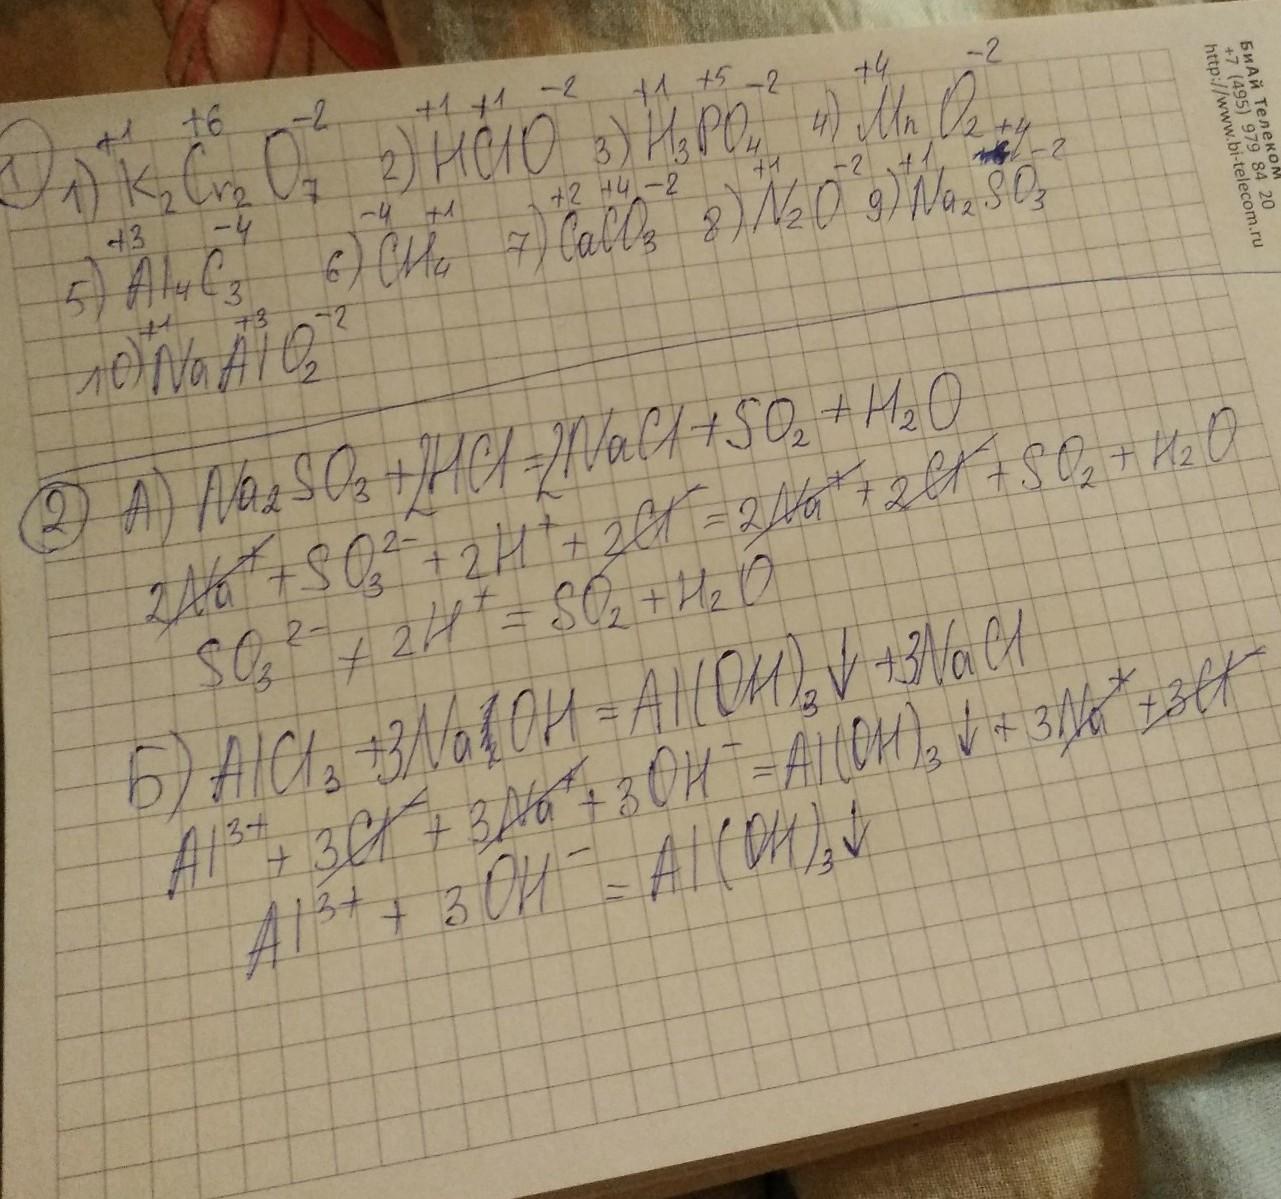 БиАй Телеком
+7 (495) 979 84 20
http://www.bi-telecom.ru
+1 +6 -2 +1 +1 -2 +1 +5 -2 +4 -2
① 1) K₂Cr₂O₇ 2) HClO 3) H₃PO₄ 4) MnO₂
+3 -4 -4 +1 +2 +4 -2 +1 -2 +1 +4 -2
5) Al₄C₃ 6) CH₄ 7) CaCO₃ 8) N₂O 9) Na₂SO₃
+1 +3 -2
10) NaAlO₂
② А) Na₂SO₃ + 2HCl = 2NaCl + SO₂ + H₂O
2Na⁺ + SO₃²⁻ + 2H⁺ + 2Cl⁻ = 2Na⁺ + 2Cl⁻ + SO₂ + H₂O
SO₃²⁻ + 2H⁺ = SO₂ + H₂O
Б) AlCl₃ + 3NaOH = Al(OH)₃↓ + 3NaCl
Al³⁺ + 3Cl⁻ + 3Na⁺ + 3OH⁻ = Al(OH)₃↓ + 3Na⁺ + 3Cl⁻
Al³⁺ + 3OH⁻ = Al(OH)₃↓